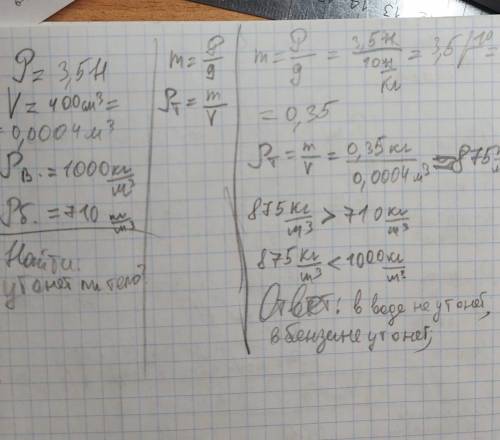 P = 3,5Н
V = 400 см³ =
= 0,0004 м³
ρв. = 1000 кг/м³
ρб. = 710 кг/м³
Найти:
утонет ли тело?
m = P/g
ρт = m/V
m = P/g = 3,5Н / 10 Н/кг = 3,5/10 =
= 0,35
ρт = m/V = 0,35 кг / 0,0004 м³ = 875
875 кг/м³ > 710 кг/м³
875 кг/м³ < 1000 кг/м³
Ответ: в воде не утонет,
в бензине утонет,